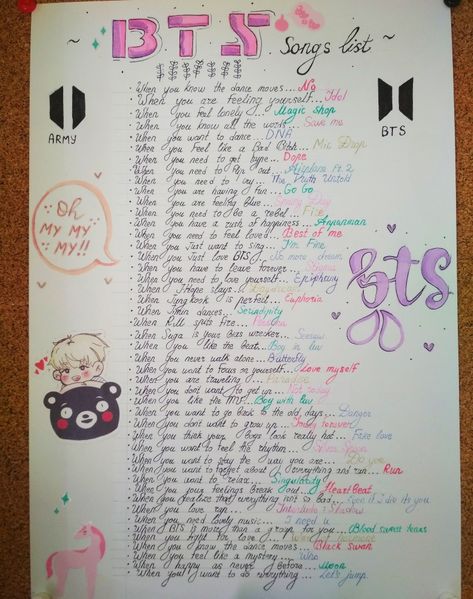 ~ BTS Songs list ~
ARMY
BTS
Oh
MY MY
MY!!
BTS
· When you know the dance moves... No
· When you are feeling yourself... Idol
· When you feel lonely... Magic Shop
· When you know all the words... Save me
· When you want to dance... DNA
· When you feel like a Bad Bitch... Mic Drop
· When you need to get hype... Dope
· When you need to Pop Out... Airplane Pt.2
· When you need to cry... The Truth Untold
· When you are having fun... Go Go
· When you are feeling blue... Spring Day
· When you need to be a rebel... Fire
· When you have a rush of happiness... Anpanman
· When you need to feel loved... Best of me
· When you Just want to sing... I'm Fine
· When you Just love BTS... No more dream
· When you have to leave forever...
· When you need to love yourself... Epiphany
· When J Hope slays...
· When Jung kook is perfect... Euphoria
· When Jimin dances... Serendipity
· When RM spits fire... Persona
· When Suga is your bias wrecker... Seesaw
· When you like the beat... Boy in luv
· When you never walk alone... Butterfly
· When you want to focus on yourself... Love myself
· When you are traveling... Paradise
· When you don't want to get up... Not today
· When you like the MV... Boy with luv
· When you want to go back to the old days... Danger
· When you don't want to grow up... Young forever
· When you think your boys look really hot... Fake love
· When you want to feel the rhythm...
· When you want to stay the way you are... Do you
· When you want to forget about everything and run... Run
· When you want to relax... Singularity
· When your feelings break out... HeartBeat
· When you realize that everything not so bad...
· When you love rap... Interlude: Shadow
· When you need lovely music... I need u
· When BTS is more than a group for you... Blood sweat tears
· When you fight for love...
· When you know the dance moves... Black Swan
· When you feel like a mystery... Who
· When happy as never before... Moon
· When you want to do everything... Let's jump.